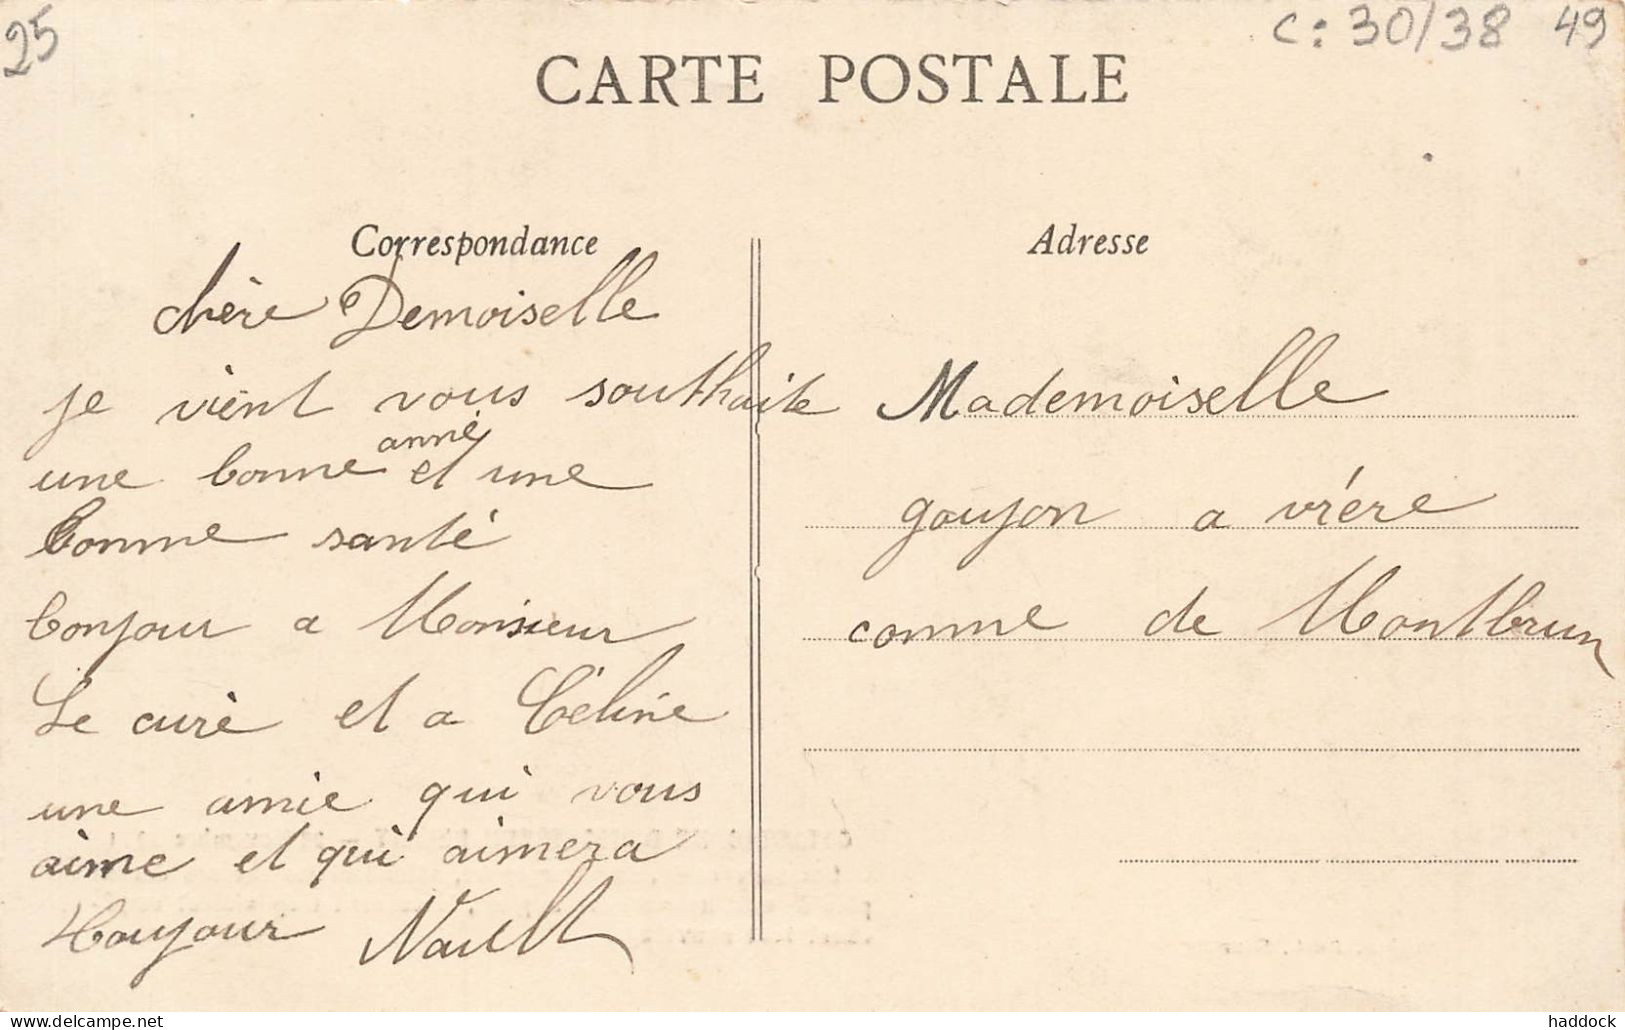 25
C: 30/38 49
CARTE POSTALE
Correspondance
chère Demoiselle
je vient vous southaite
une bonne anné et une
bonne santé
bonjour a Monsieur
Le curè et a Céline
une amie qui vous
aime et qui aimera
toujour
Adresse
Mademoiselle
goujon a vière
comme de Montbrun
delcampe.net
haddock